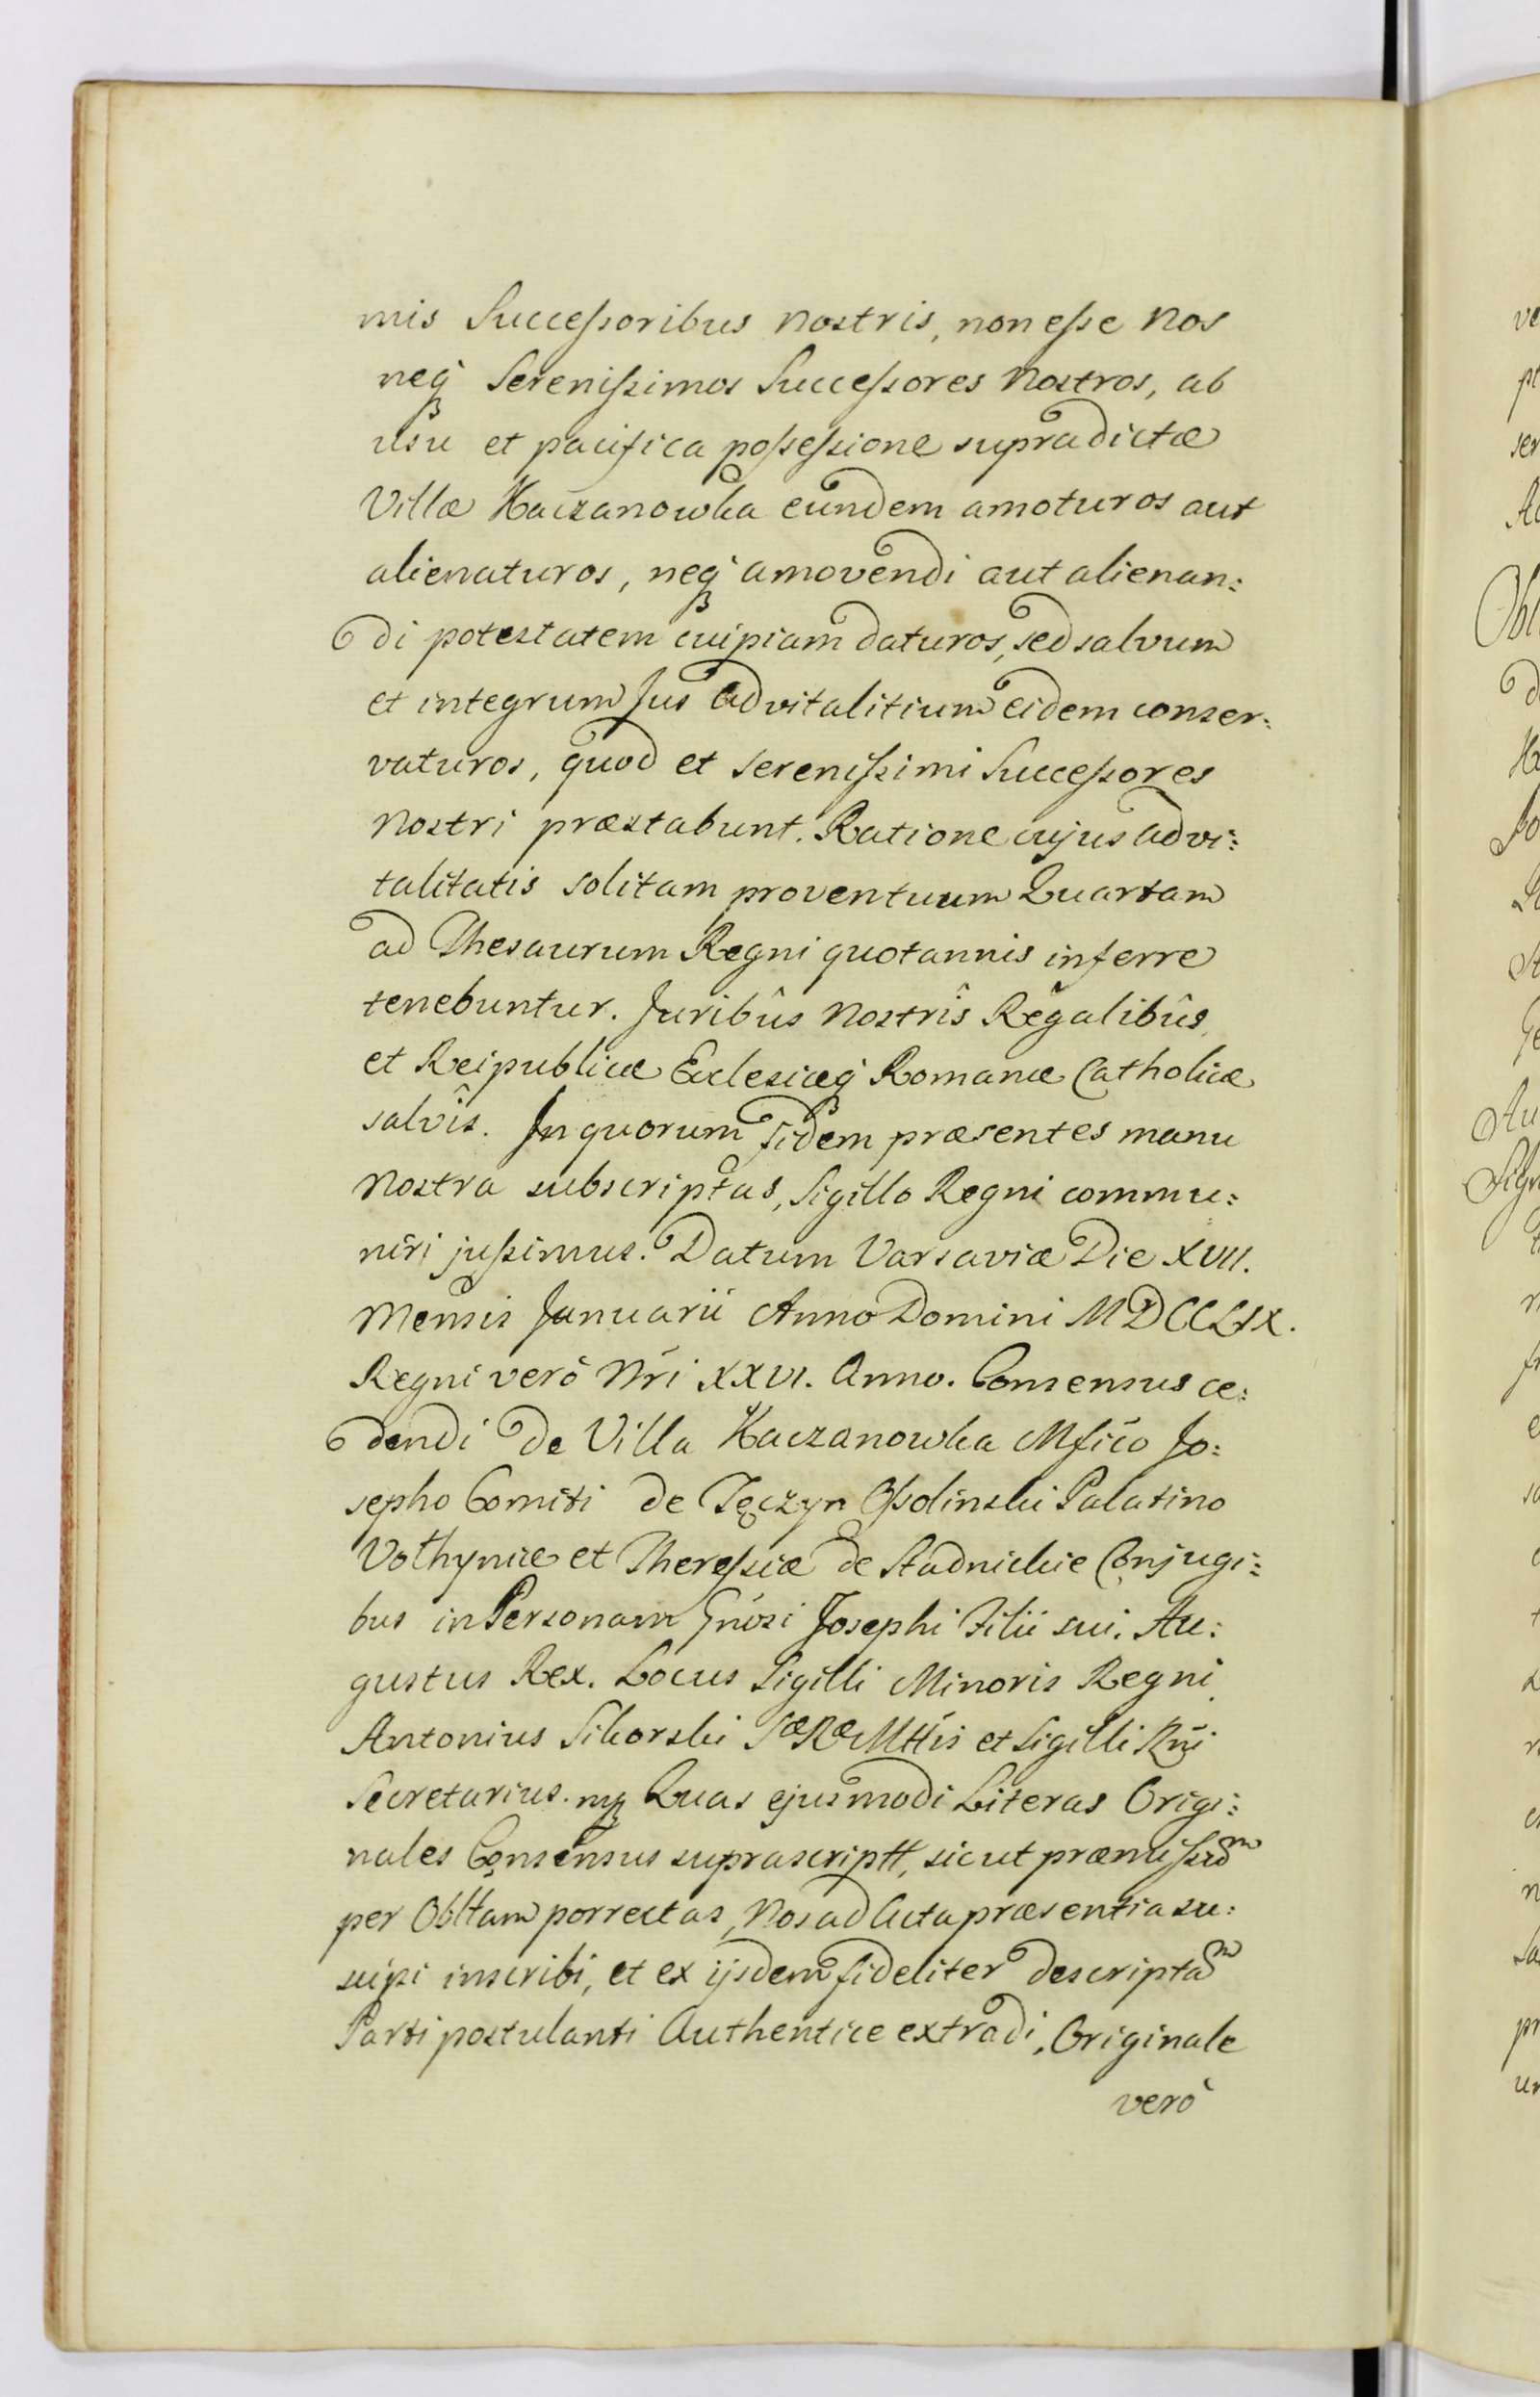 mis Successoribus Nostris, non esse Nos
neq́ꝫ Serenissimos Successores Nostros, ab
usu et pacifica possessione supradictæ
Villæ Kaczanowka eundem amoturos aut
alienaturos, neq́ꝫ amovendi aut alienan:
di potestatem cuipiam daturos, sed salvum
et integrum Jus Advitalitium eidem conser:
vaturos, quod et Serenissimi Successores
Nostri præstabunt. Ratione cujus Advi:
talitatis solitam proventuum Quartam
ad Thesaurum Regni quotannis inferre
tenebuntur. Juribûs Nostrîs Regalibûs,
et Reipublicæ Ecclesiæq́ꝫ Romanæ Catholicæ
salvîs. In quorum fidem præsentes manu
Nostra subscriptas, Sigillo Regni commu:
niri jussimus. Datum Varsaviæ Die XVII.
Mensis Januarii Anno Domini MDCCLIX.
Regni verò Nri XXVI. Anno. Consensus ce:
dendi de Villa Kaczanowka Mfico Jo:
sepho Comiti de Tęczyn Ossolinski Palatino
Volhyniæ et Theressiæ de Stadnickie Conjugi:
bus in Personam Gnosi Josephi Filii sui. Au:
gustus Rex. Locus Sigilli Minoris Regni
Antonius Sikorski SæRæMttis et Sigilli Rni
Secretarius. mp Quas ejusmodi Literas Origi:
nales Consensus suprascriptt, sicut præmissum
per Oblttam porrectas, Nos ad Acta præsentia su:
scipi inscribi, et ex ijsdem fideliter descriptam
Parti postulanti Authentice extradi, Originale
verò